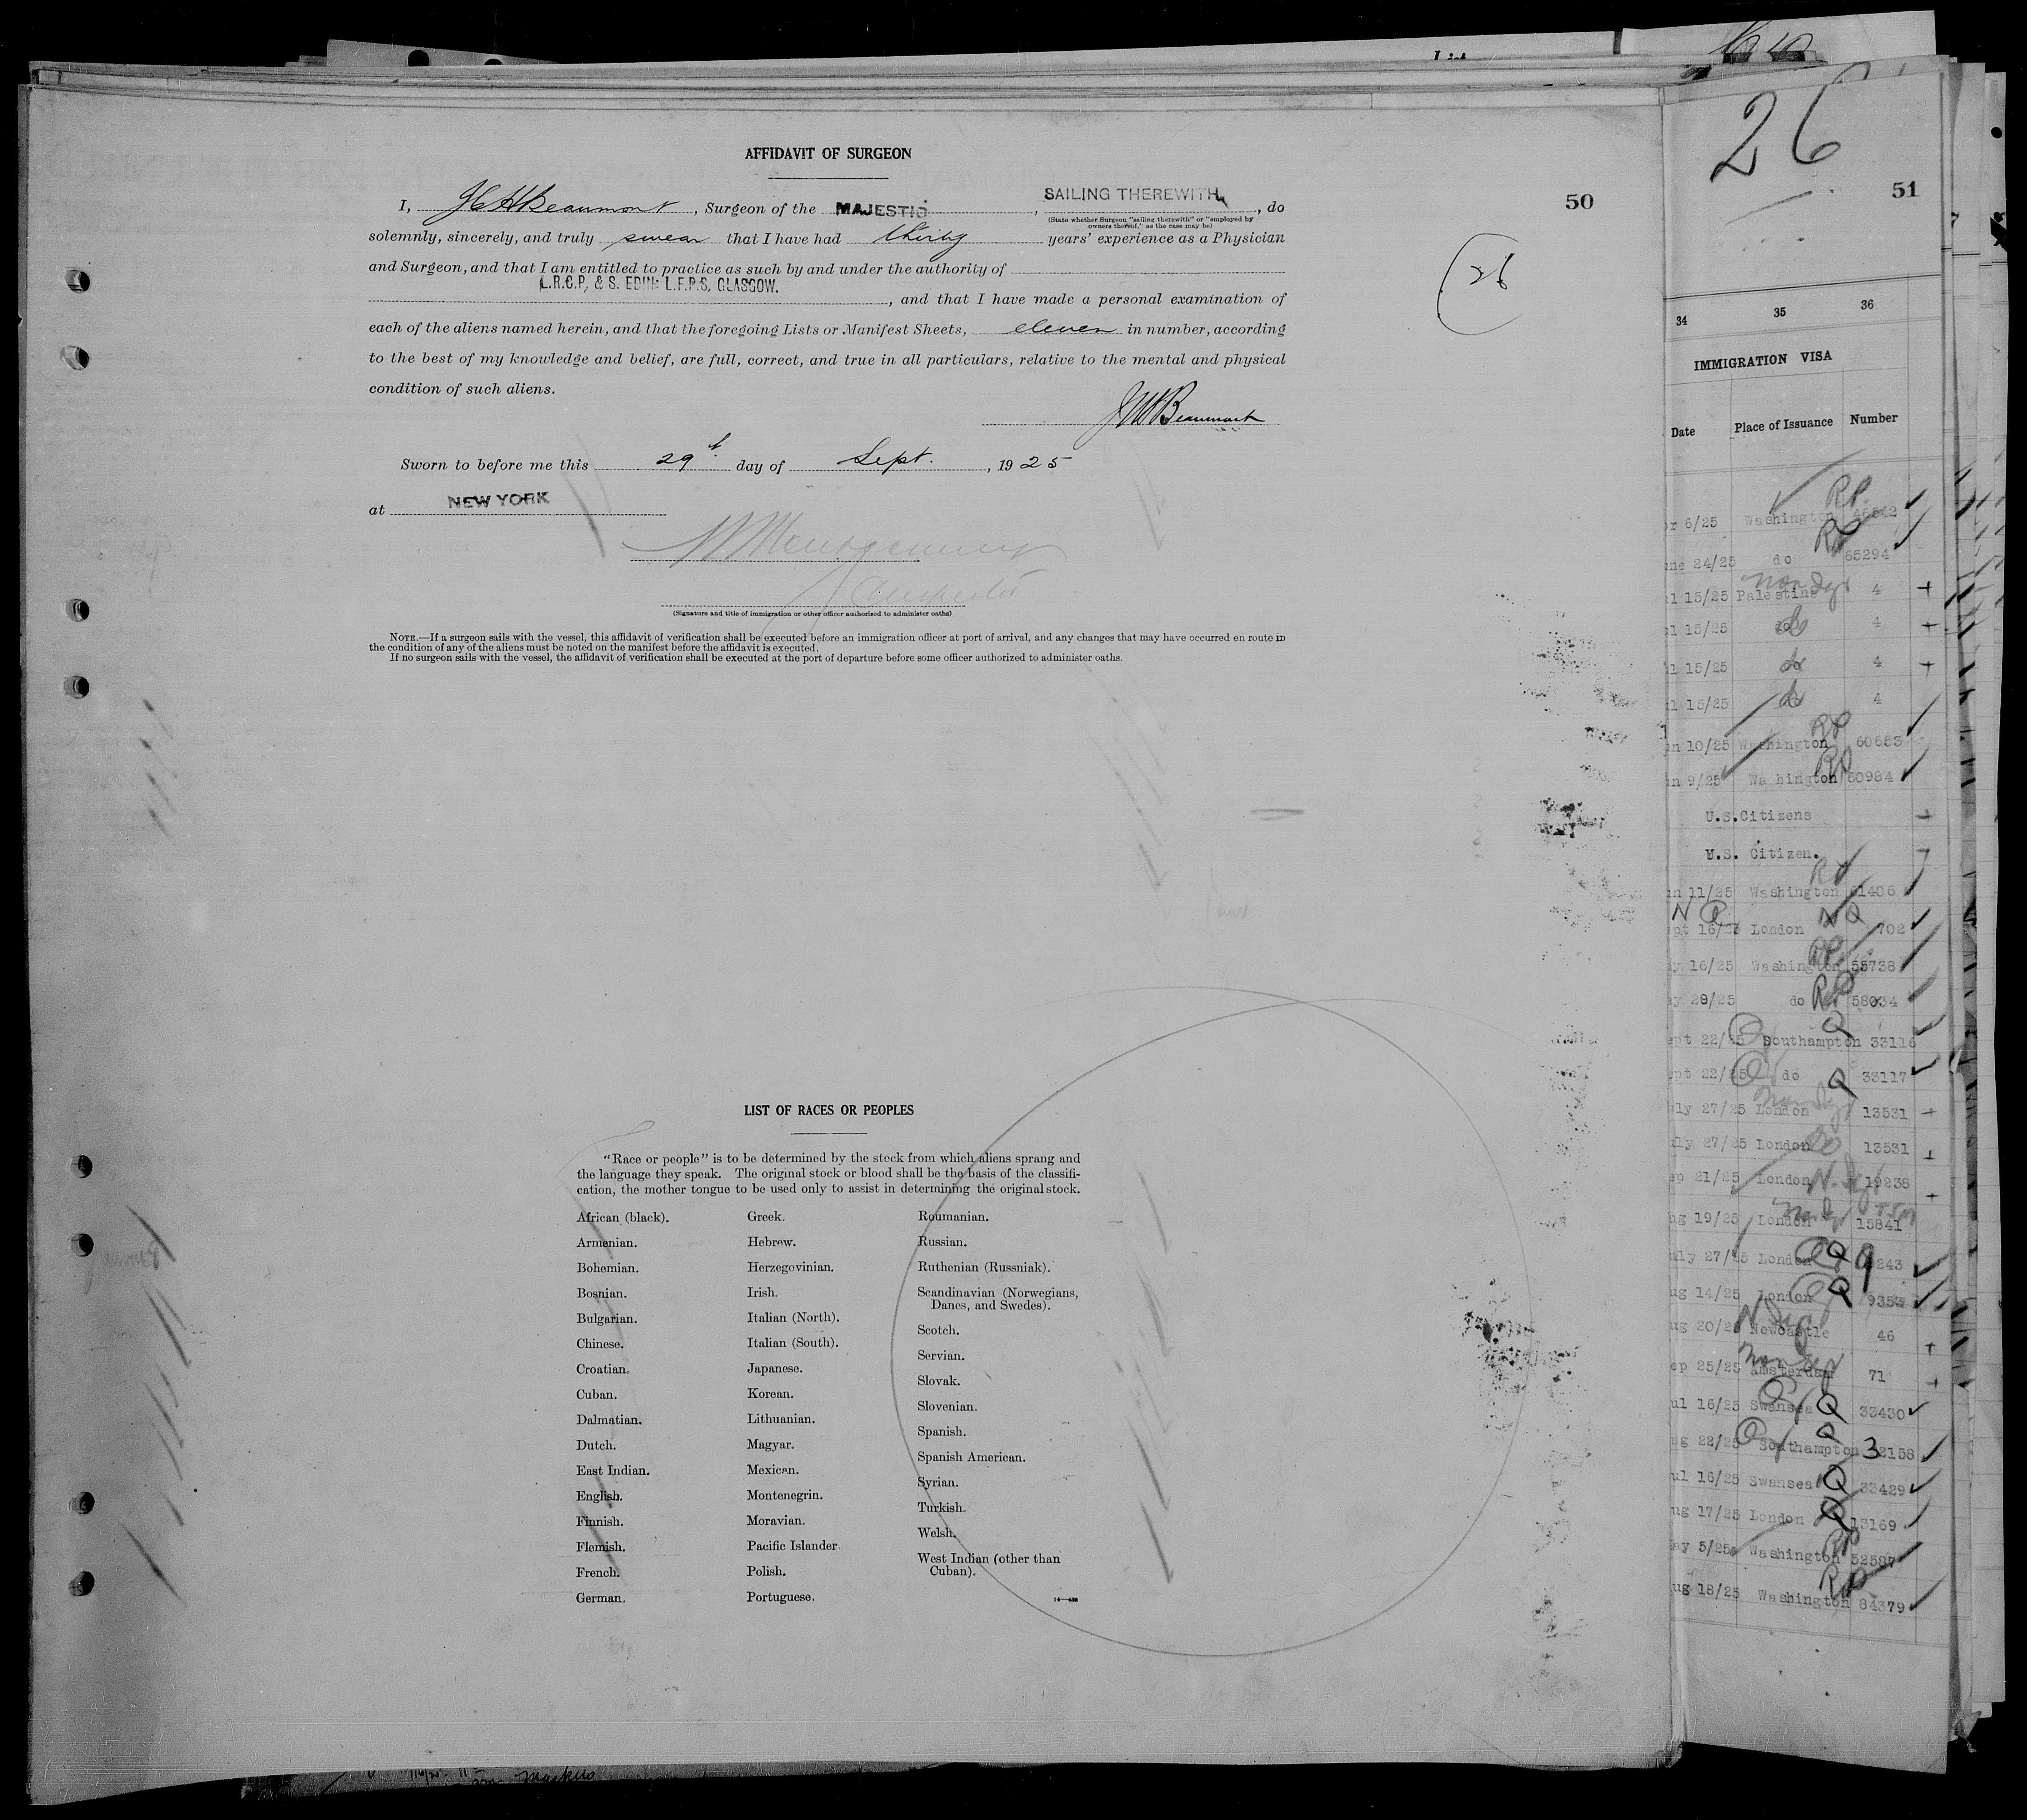 AFFIDAVIT OF SURGEON
I, JHHBeaumont, Surgeon of the MAJESTIC, SAILING THEREWITH, do
(State whether Surgeon "sailing therewith" or "employed by
owners thereof," as the case may be)
solemnly, sincerely, and truly swear that I have had thirty years' experience as a Physician
and Surgeon, and that I am entitled to practice as such by and under the authority of
L.R.C.P, & S. EDIN: L.F.P.S, GLASGOW.
, and that I have made a personal examination of
each of the aliens named herein, and that the foregoing Lists or Manifest Sheets, eleven in number, according
to the best of my knowledge and belief, are full, correct, and true in all particulars, relative to the mental and physical
condition of such aliens.
Beaumont
Sworn to before me this 29th day of Sept., 1925
at NEW YORK
Montgomery
Inspector
(Signature and title of immigration or other officer authorized to administer oaths)
NOTE.—If a surgeon sails with the vessel, this affidavit of verification shall be executed before an immigration officer at port of arrival, and any changes that may have occurred en route in
the condition of any of the aliens must be noted on the manifest before the affidavit is executed.
If no surgeon sails with the vessel, the affidavit of verification shall be executed at the port of departure before some officer authorized to administer oaths.
50
26
LIST OF RACES OR PEOPLES
"Race or people" is to be determined by the stock from which aliens sprang and
the language they speak. The original stock or blood shall be the basis of the classifi-
cation, the mother tongue to be used only to assist in determining the original stock.
African (black).
Armenian.
Bohemian.
Bosnian.
Bulgarian.
Chinese.
Croatian.
Cuban.
Dalmatian.
Dutch.
East Indian.
English.
Finnish.
Flemish.
French.
German.
Greek.
Hebrew.
Herzegovinian.
Irish.
Italian (North).
Italian (South).
Japanese.
Korean.
Lithuanian.
Magyar.
Mexican.
Montenegrin.
Moravian.
Pacific Islander
Polish.
Portuguese.
Roumanian.
Russian.
Ruthenian (Russniak).
Scandinavian (Norwegians,
Danes, and Swedes).
Scotch.
Servian.
Slovak.
Slovenian.
Spanish.
Spanish American.
Syrian.
Turkish.
Welsh.
West Indian (other than
Cuban).
26
51
34 35 36
IMMIGRATION VISA
Date Place of Issuance Number
6/25 Washington RP 46542
24/25 do RP 65294
15/25 Palestine 4
15/25 do 4
15/25 do 4
15/25 do 4
10/25 Washington RP 60653
9/25 Washington RP 60984
U.S.Citizens
U.S. Citizen.
11/25 Washington RP 61406
16/25 London NQ 702
16/25 Washington RP 55738
29/25 do RP 58034
22/25 Southampton Q 33116
22/25 do Q 33117
27/25 London 13531
27/25 London 13531
21/25 London 19238
19/25 London 15841
27/25 London Q 9243
14/25 London Q
20/25 Newcastle 46
25/25 Amsterdam 71
16/25 Swansea Q 33430
22/25 Southampton Q 32158
16/25 Swansea Q 33429
17/25 London Q 13169
5/25 Washington RP 52587
18/25 Washington RP 84379